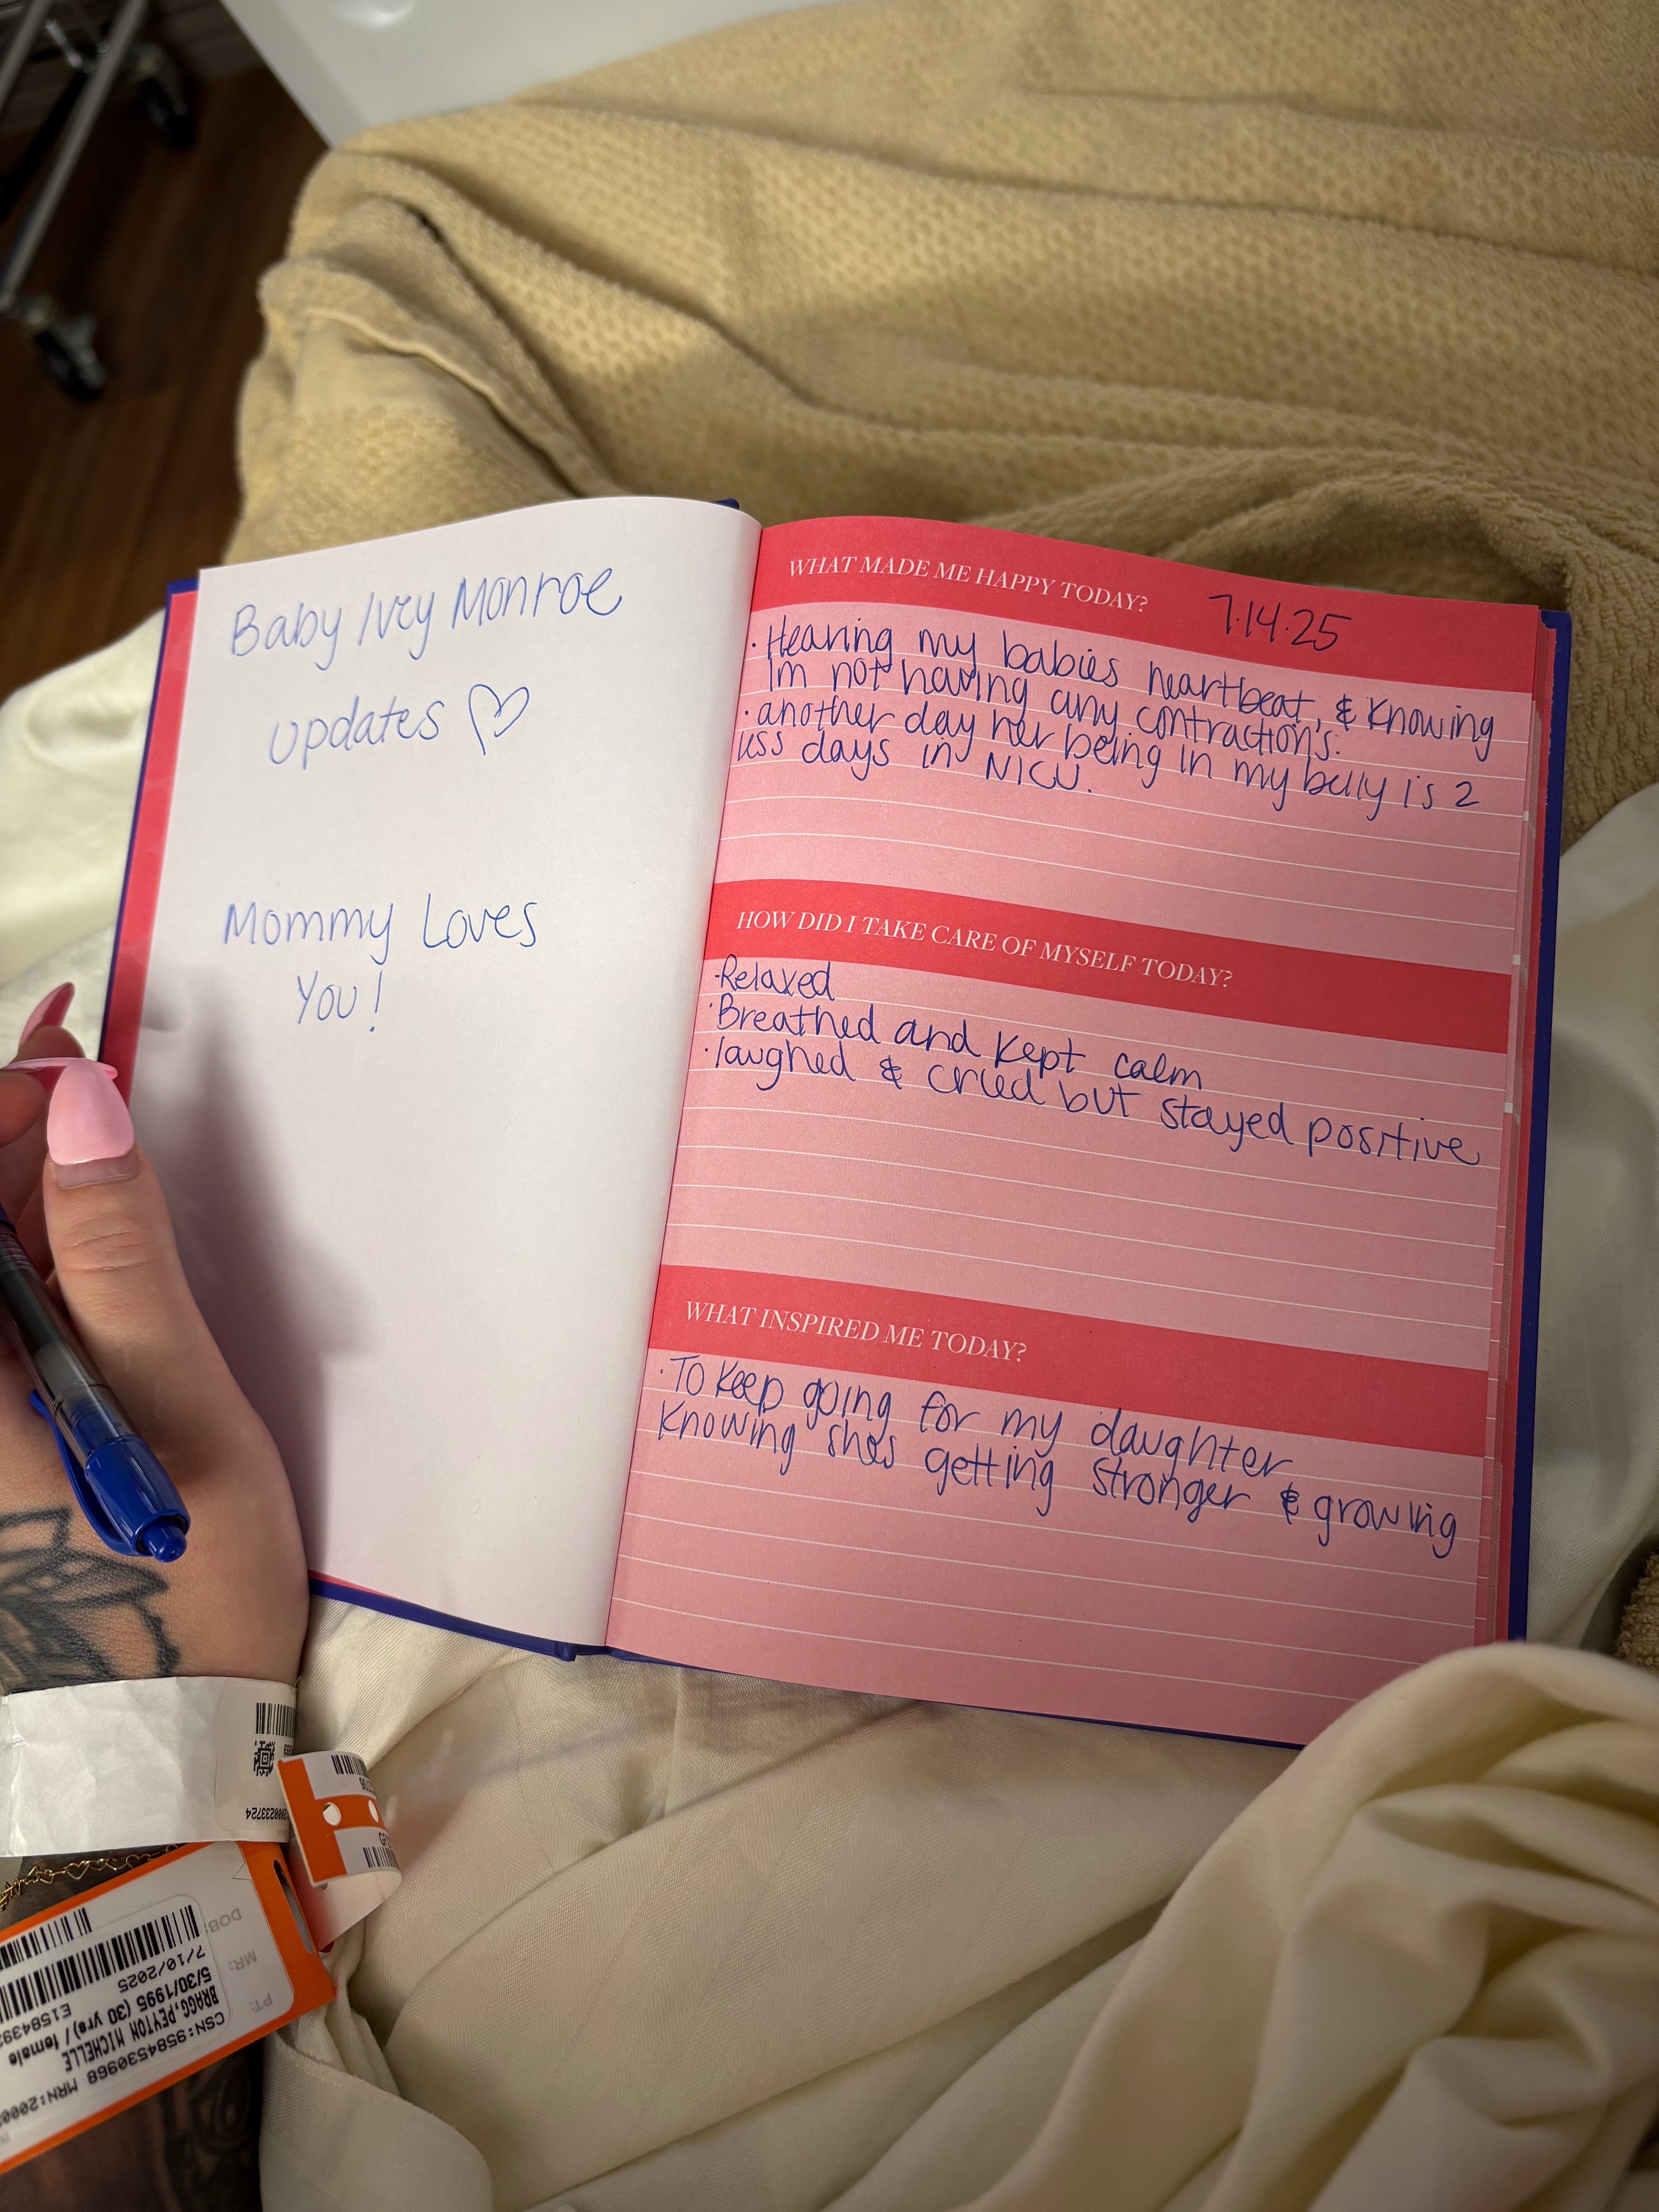 Baby Ivey Monroe
updates ♡
Mommy Loves
You!
WHAT MADE ME HAPPY TODAY?
7.14.25
· Hearing my babies heartbeat, & Knowing
Im not having any contractions.
· another day her being in my belly is 2
less days in NICU.
HOW DID I TAKE CARE OF MYSELF TODAY?
·Relaxed
·Breathed and Kept calm
·laughed & cried but stayed positive
WHAT INSPIRED ME TODAY?
·To Keep going for my daughter
Knowing shes getting stronger & growing
PT:
MR:
DOB:
BRAGG,PEYTON MICHELLE
5/30/1995 (30 yrs) / female
7/10/2025